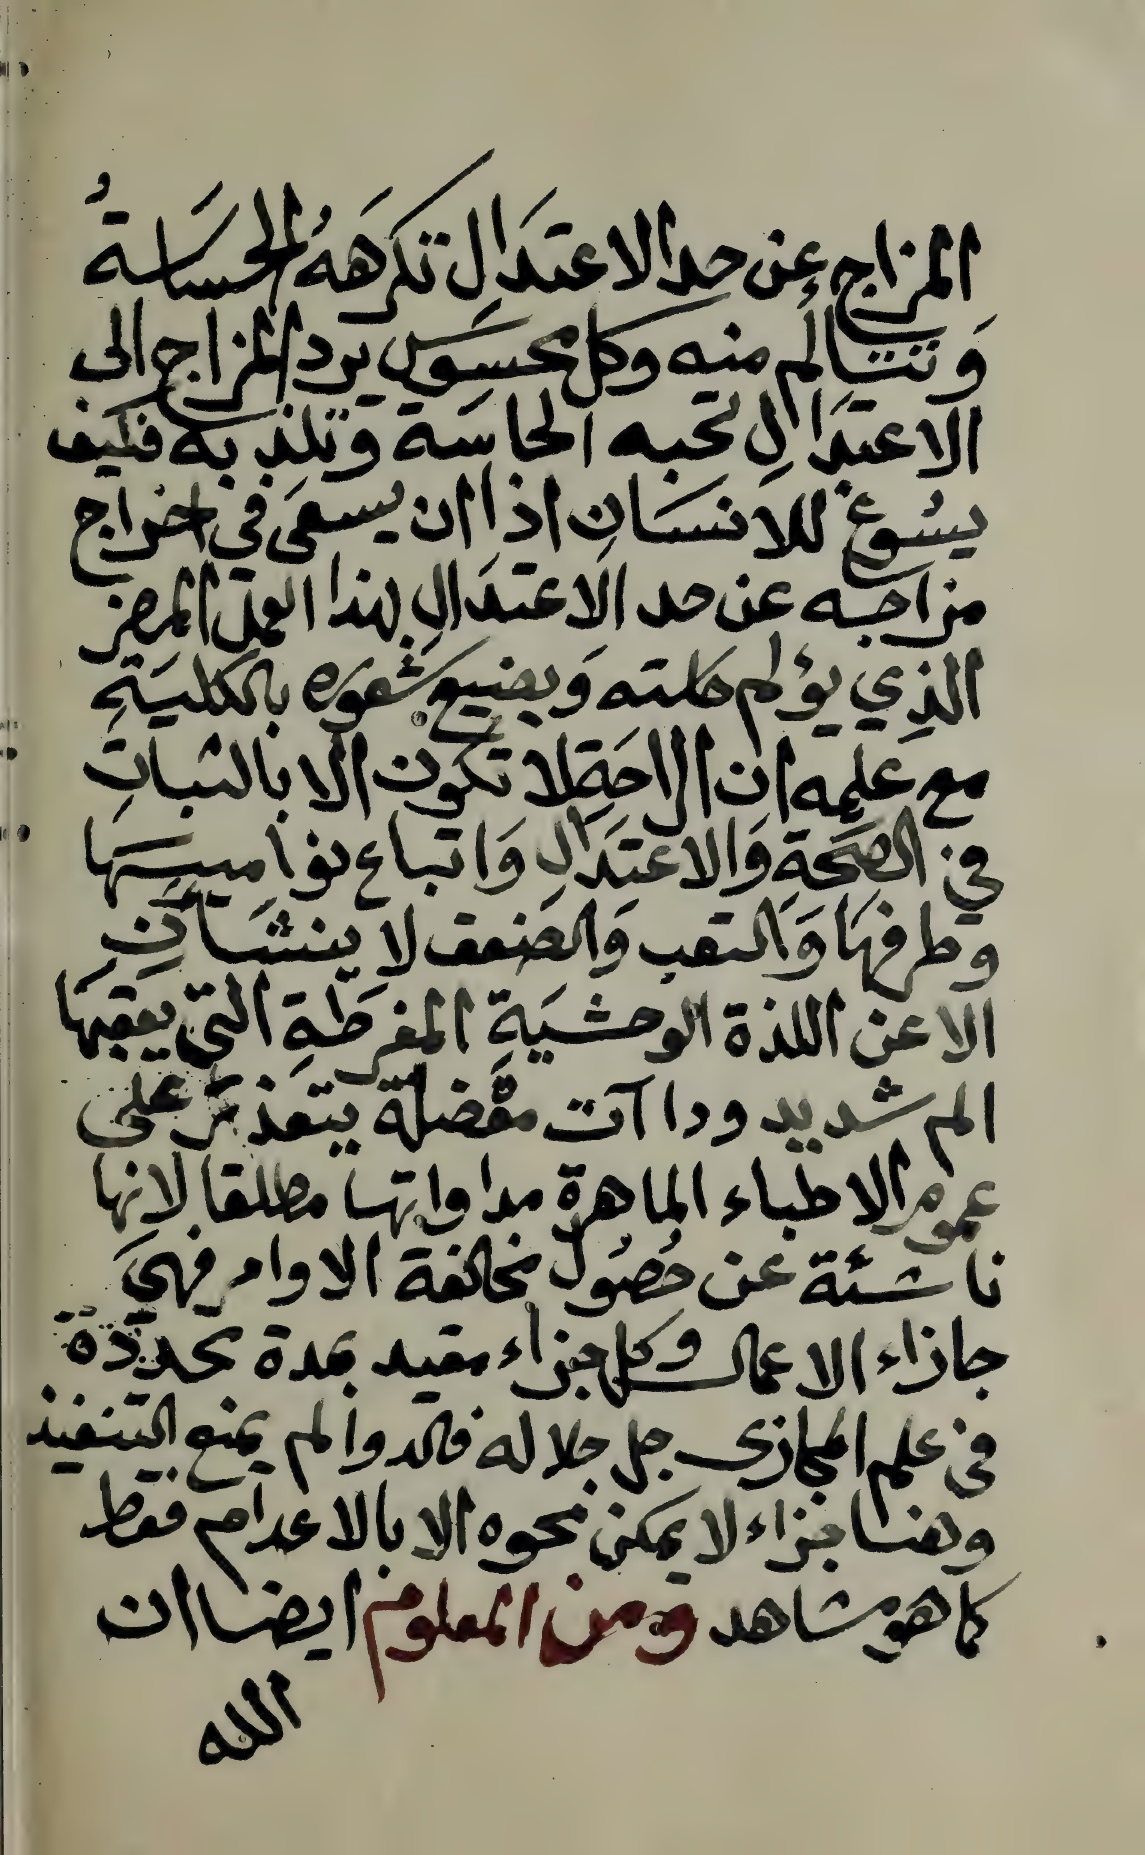 المزاج عن حد الاعتدَالِ تكرَههُ الحسَاسةُ
وَتتألم منه وكل محسوس يرد المزاج الى
الاعتدَالِ تحبه الحاسَة وتلذ به فكيف
يسُوغ للانسَانِ اذا ان يسعَى في اخراج
مزاجه عن حد الاعتدَالِ بهذا العمل المضر
الذِي يؤلم حاسته وَيضيع شعورَه بالكليَةِ
مع علمِه ان الراحَةِ لا تكون الا بالثباتِ
في الصِحَةِ وَالاعتِدَالِ وَاتباع نواميسِهَا
وطرفهَا وَالتعب وَالضعف لا ينشَأنِ
الا عن اللذة الوحشيَةِ المفرطَةِ التي يعقبهَا
الم شديد وداآت معضلة يتعذر على
عموم الاطباء الماهرة مداواتها مطلقا لانها
ناشئة عن حُصُول مخالفة الاوامر فهيَ
جازاء الاعمال وكل جزاء مقيد بمدة محددة
في علم المجازى جل جلاله فالدوا لم يمنع التنفيذ
وهنا جزاء لا يمكن نحوه الا بالاعدام فقط
كما هو مشاهد ومن المعلوم ايضا ان
الله